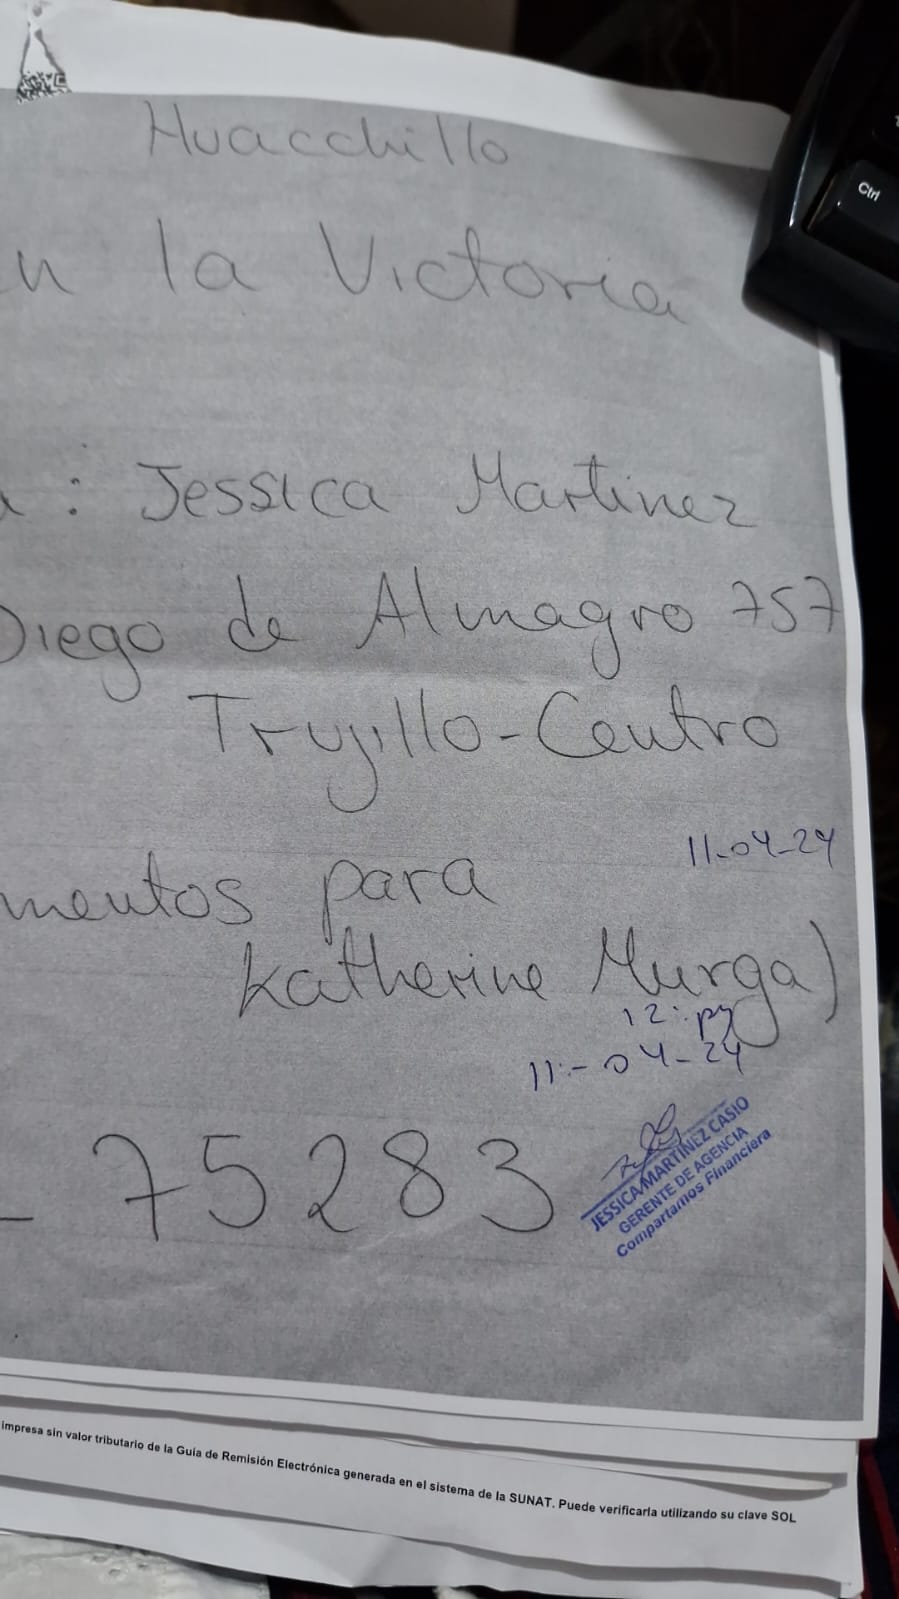 Huacchillo
n la Victoria
a: Jessica Martinez
Diego de Almagro 757
Trujillo-Centro
11-04-24
mentos para
Katherine Murga)
11:-04-24
- 75283
JESSICA MARTINEZ CASIO
GERENTE DE AGENCIA
Compartamos Financiera
impresa sin valor tributario de la Guía de Remisión Electrónica generada en el sistema de la SUNAT. Puede verificarla utilizando su clave SOL
Ctrl